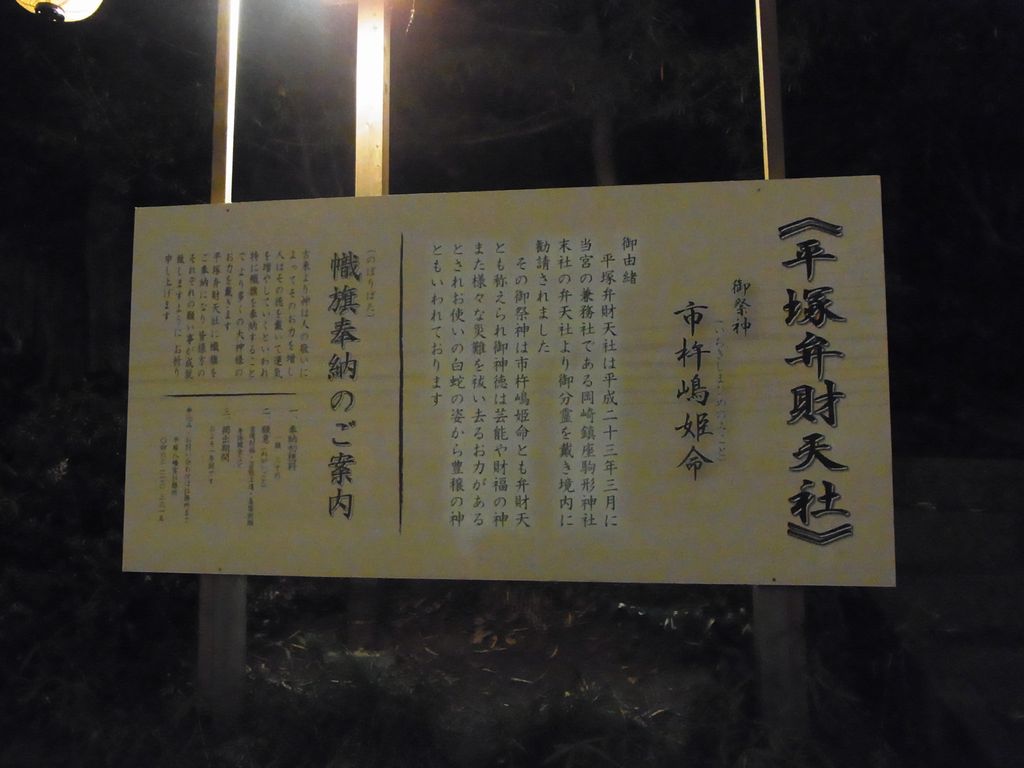 《平塚弁財天社》
御祭神
(いちきしまひめのみこと)
市杵嶋姫命
御由緒
平塚弁財天社は平成二十三年三月に
当宮の兼務社である岡崎鎮座駒形神社
末社の弁天社より御分霊を戴き境内に
勧請されました
その御祭神は市杵嶋姫命とも弁財天
とも称えられ御神徳は芸能や財福の神
また様々な災難を祓い去るお力がある
とされお使いの白蛇の姿から豊穣の神
ともいわれております
(のぼりばた)
幟旗奉納のご案内
古来より神は人の敬いに
よってそのお力を増し
人はその徳を戴いて運気
を増やしていくといわれ
特に幟旗を奉納すること
でより多くの大神様の
お力を戴きます
平塚弁財天社に幟旗を
ご奉納になり皆様方の
それぞれの願い事が成就
致しますように お祈り
申し上げます
一、奉納初穂料
二、願意
三、掲出期間